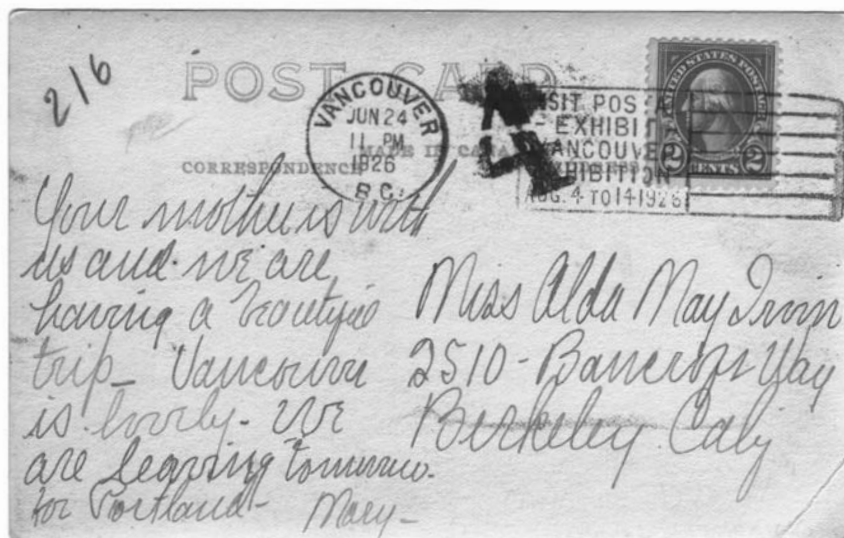 216
POST CARD
VANCOUVER
JUN 24
11 PM
1926
B.C.
VISIT POSTAL
EXHIBIT
VANCOUVER
EXHIBITION
AUG. 4 TO 14 1926
UNITED STATES POSTAGE
2 CENTS 2
MADE IN CANADA
CORRESPONDENCE
Your mother is with
us and we are
having a beautiful
trip - Vancouver
is lovely - We
are leaving tomorrow.
for Portland -
Mary -
Miss Alda May Irvin
2510 - Bancroft Way
Berkeley. Calif